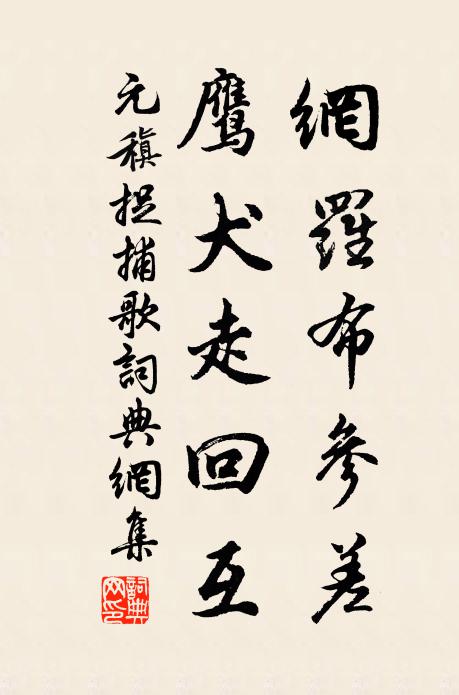 網羅布參差
鷹犬走回互
元稹捉捕歌詞典網集
詞典网印